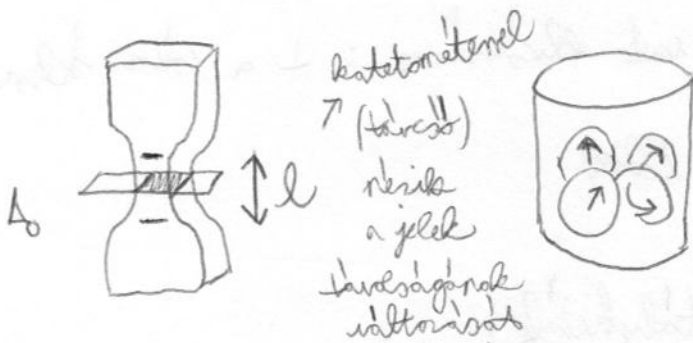 katetométerrel
(távcső)
nézik
a jelek
távolságának
változását
l
A₀